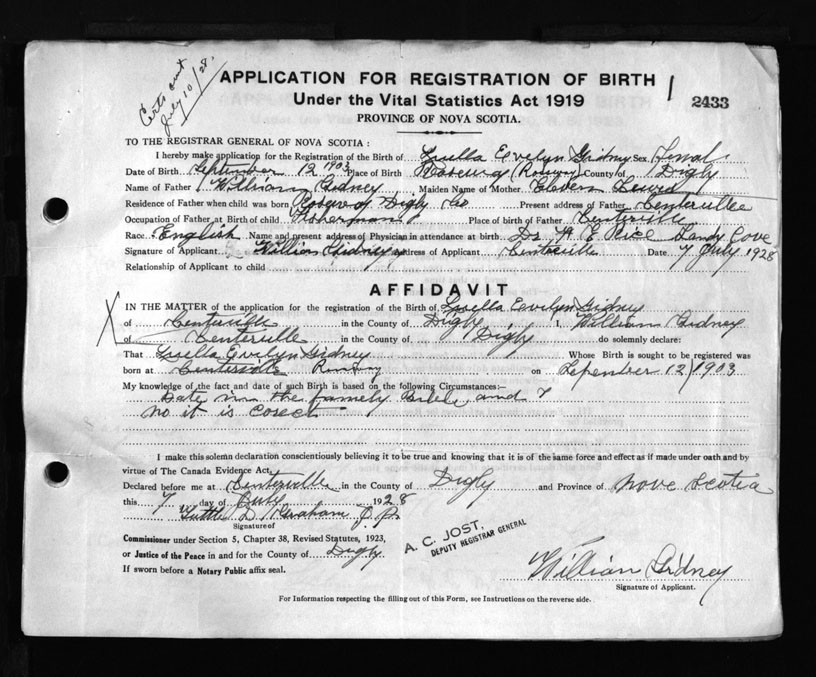 Certs sent
July 10/28.
APPLICATION FOR REGISTRATION OF BIRTH
2433
Under the Vital Statistics Act 1919
PROVINCE OF NOVA SCOTIA.
TO THE REGISTRAR GENERAL OF NOVA SCOTIA :
I hereby make application for the Registration of the Birth of Luella Evelyn Gidney Sex Femal
Date of Birth September 12 1903 Place of Birth (Rossway) County of Digby
Name of Father William Gidney Maiden Name of Mother Lewis
Residence of Father when child was born Digby Co Present address of Father Centerville
Occupation of Father at Birth of child Fisherman Place of birth of Father Centerville
Race. English Name and present address of Physician in attendance at birth Dr Rice Sandy Cove
Signature of Applicant William Gidney address of Applicant Centerville Date 7 July 1928
Relationship of Applicant to child
AFFIDAVIT
IN THE MATTER of the application for the registration of the Birth of Luella Evelyn Gidney
of Centerville in the County of Digby I, William Gidney
of Centerville in the County of Digby do solemnly declare:
That Luella Evelyn Gidney Whose Birth is sought to be registered was
born at Centerville Rossway on Sepember 12 1903
My knowledge of the fact and date of such Birth is based on the following Circumstances:—
Date in the famely Bible and I
no it is corect
I make this solemn declaration conscientiously believing it to be true and knowing that it is of the same force and effect as if made under oath and by
virtue of The Canada Evidence Act.
Declared before me at Centerville in the County of Digby and Province of Nova Scotia
this 7 day of July 1928
Graham J.P.
Signature of
Commissioner under Section 5, Chapter 38, Revised Statutes, 1923,
or Justice of the Peace in and for the County of Digby
If sworn before a Notary Public affix seal.
A. C. JOST,
DEPUTY REGISTRAR GENERAL
William Gidney
Signature of Applicant.
For Information respecting the filling out of this Form, see Instructions on the reverse side.